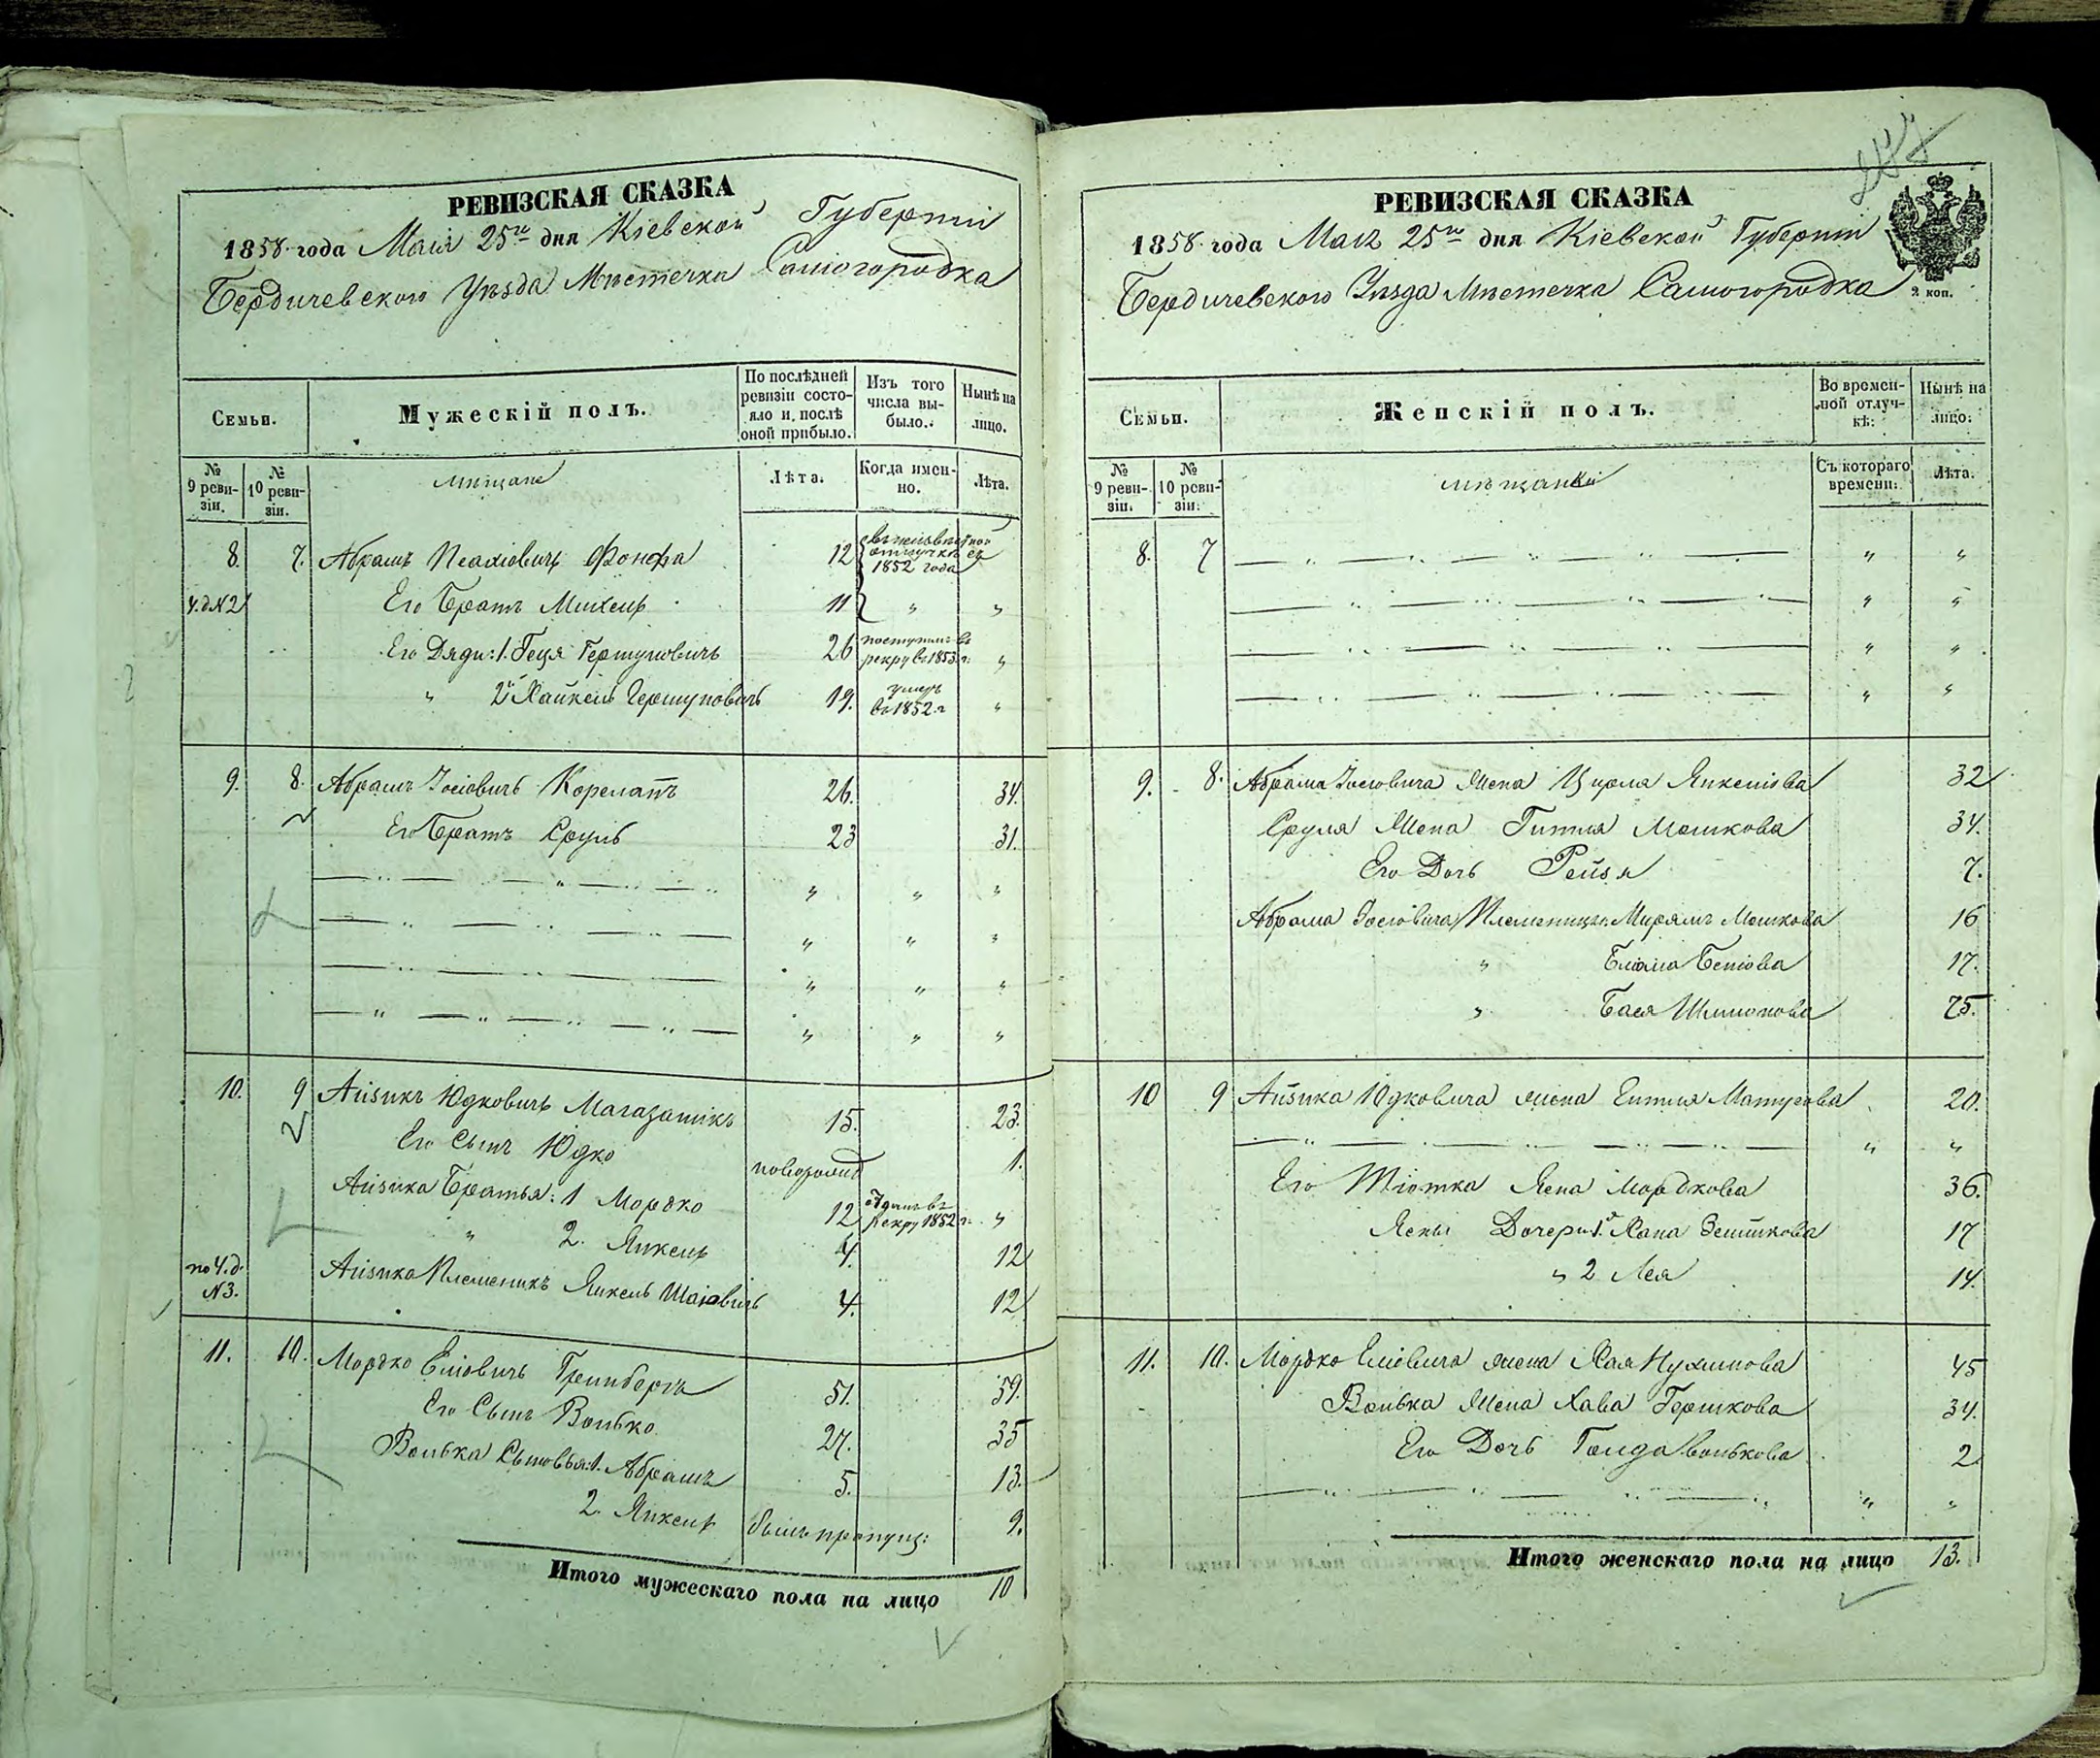 РЕВИЗСКАЯ СКАЗКА
1858 года Маія 25го дня Кіевской Губерніи
Бердичевского Уѣзда Мѣстечка Самогородка
Семьи.
Мужескій полъ.
По послѣдней ревизіи состояло и послѣ оной прибыло.
Изъ того числа выбыло.
Нынѣ на лицо.
№ 9 ревизіи.
№ 10 ревизіи.
мѣщане
Лѣта.
Когда именно.
Лѣта.
8. 7. Абрамъ Псахіовичъ Фонфа 12 отлучкѣ съ 1852 года
ч.д. №2 Его Братъ Михель 11 " "
Его Дяди: 1. Геця Гершуновичъ 26 поступилъ въ рекру въ 1853 г. "
" 2й Хайкель Гершуновичъ 19. умеръ въ 1852 г. "
9. 8. Абрамъ Іосіовичъ 26. 34.
Его Братъ Сруль 23 31.
" " "
" " "
" " "
" " "
10. 9 Айзикъ Юдковичъ Магазаникъ 15. 23.
Его Сынъ Юдко новорожд 1.
Айзика Братья: 1 Мордко 12 отданъ въ рекру 1852 г. "
" 2. Янкель 4. 12
по ч.д. №3. Айзика Племеникъ Янкель Шаіовичъ 4. 12
11. 10. Мордко Еліовичъ Гринбергъ 51. 59.
Его Сынъ Волько 27. 35
Волька Сыновья: 1. Абрамъ 5. 13.
2. Янкель былъ пропущ: 9.
Итого мужескаго пола на лицо 10
РЕВИЗСКАЯ СКАЗКА
1858 года Маія 25го дня Кіевской Губерніи
Бердичевского Уѣзда Мѣстечка Самогородка
2 коп.
Семьи.
Женскій полъ.
Во временной отлучкѣ:
Нынѣ на лицо:
№ 9 ревизіи.
№ 10 ревизіи.
мѣщанки
Съ котораго времени:
Лѣта.
8. 7 " "
" "
" "
" "
9. 8. Абрама Іосіовича Жена Цирля Янкеліова 32
Сруля Жена Гитля Мошкова 34.
Его Дочь Рейзя 7.
Абрама Іосіовича Племеницы: Мирямъ Мошкова 16
" Бліома 17.
" Бася Шлимонова 75.
10 9 Айзика Юдковича жена Ентля Матусова 20.
" "
Его Тіотка Хена Мордкова 36.
Хены Дочери 1. Хана Зейликова 17
" 2 Лея 14.
11. 10. Мордко Еліовича жена Хая Нухимова 45
Волька Жена Хава Гершкова 34.
Его Дочь Голда Волькова 2
" "
Итого женскаго пола на лицо 13.